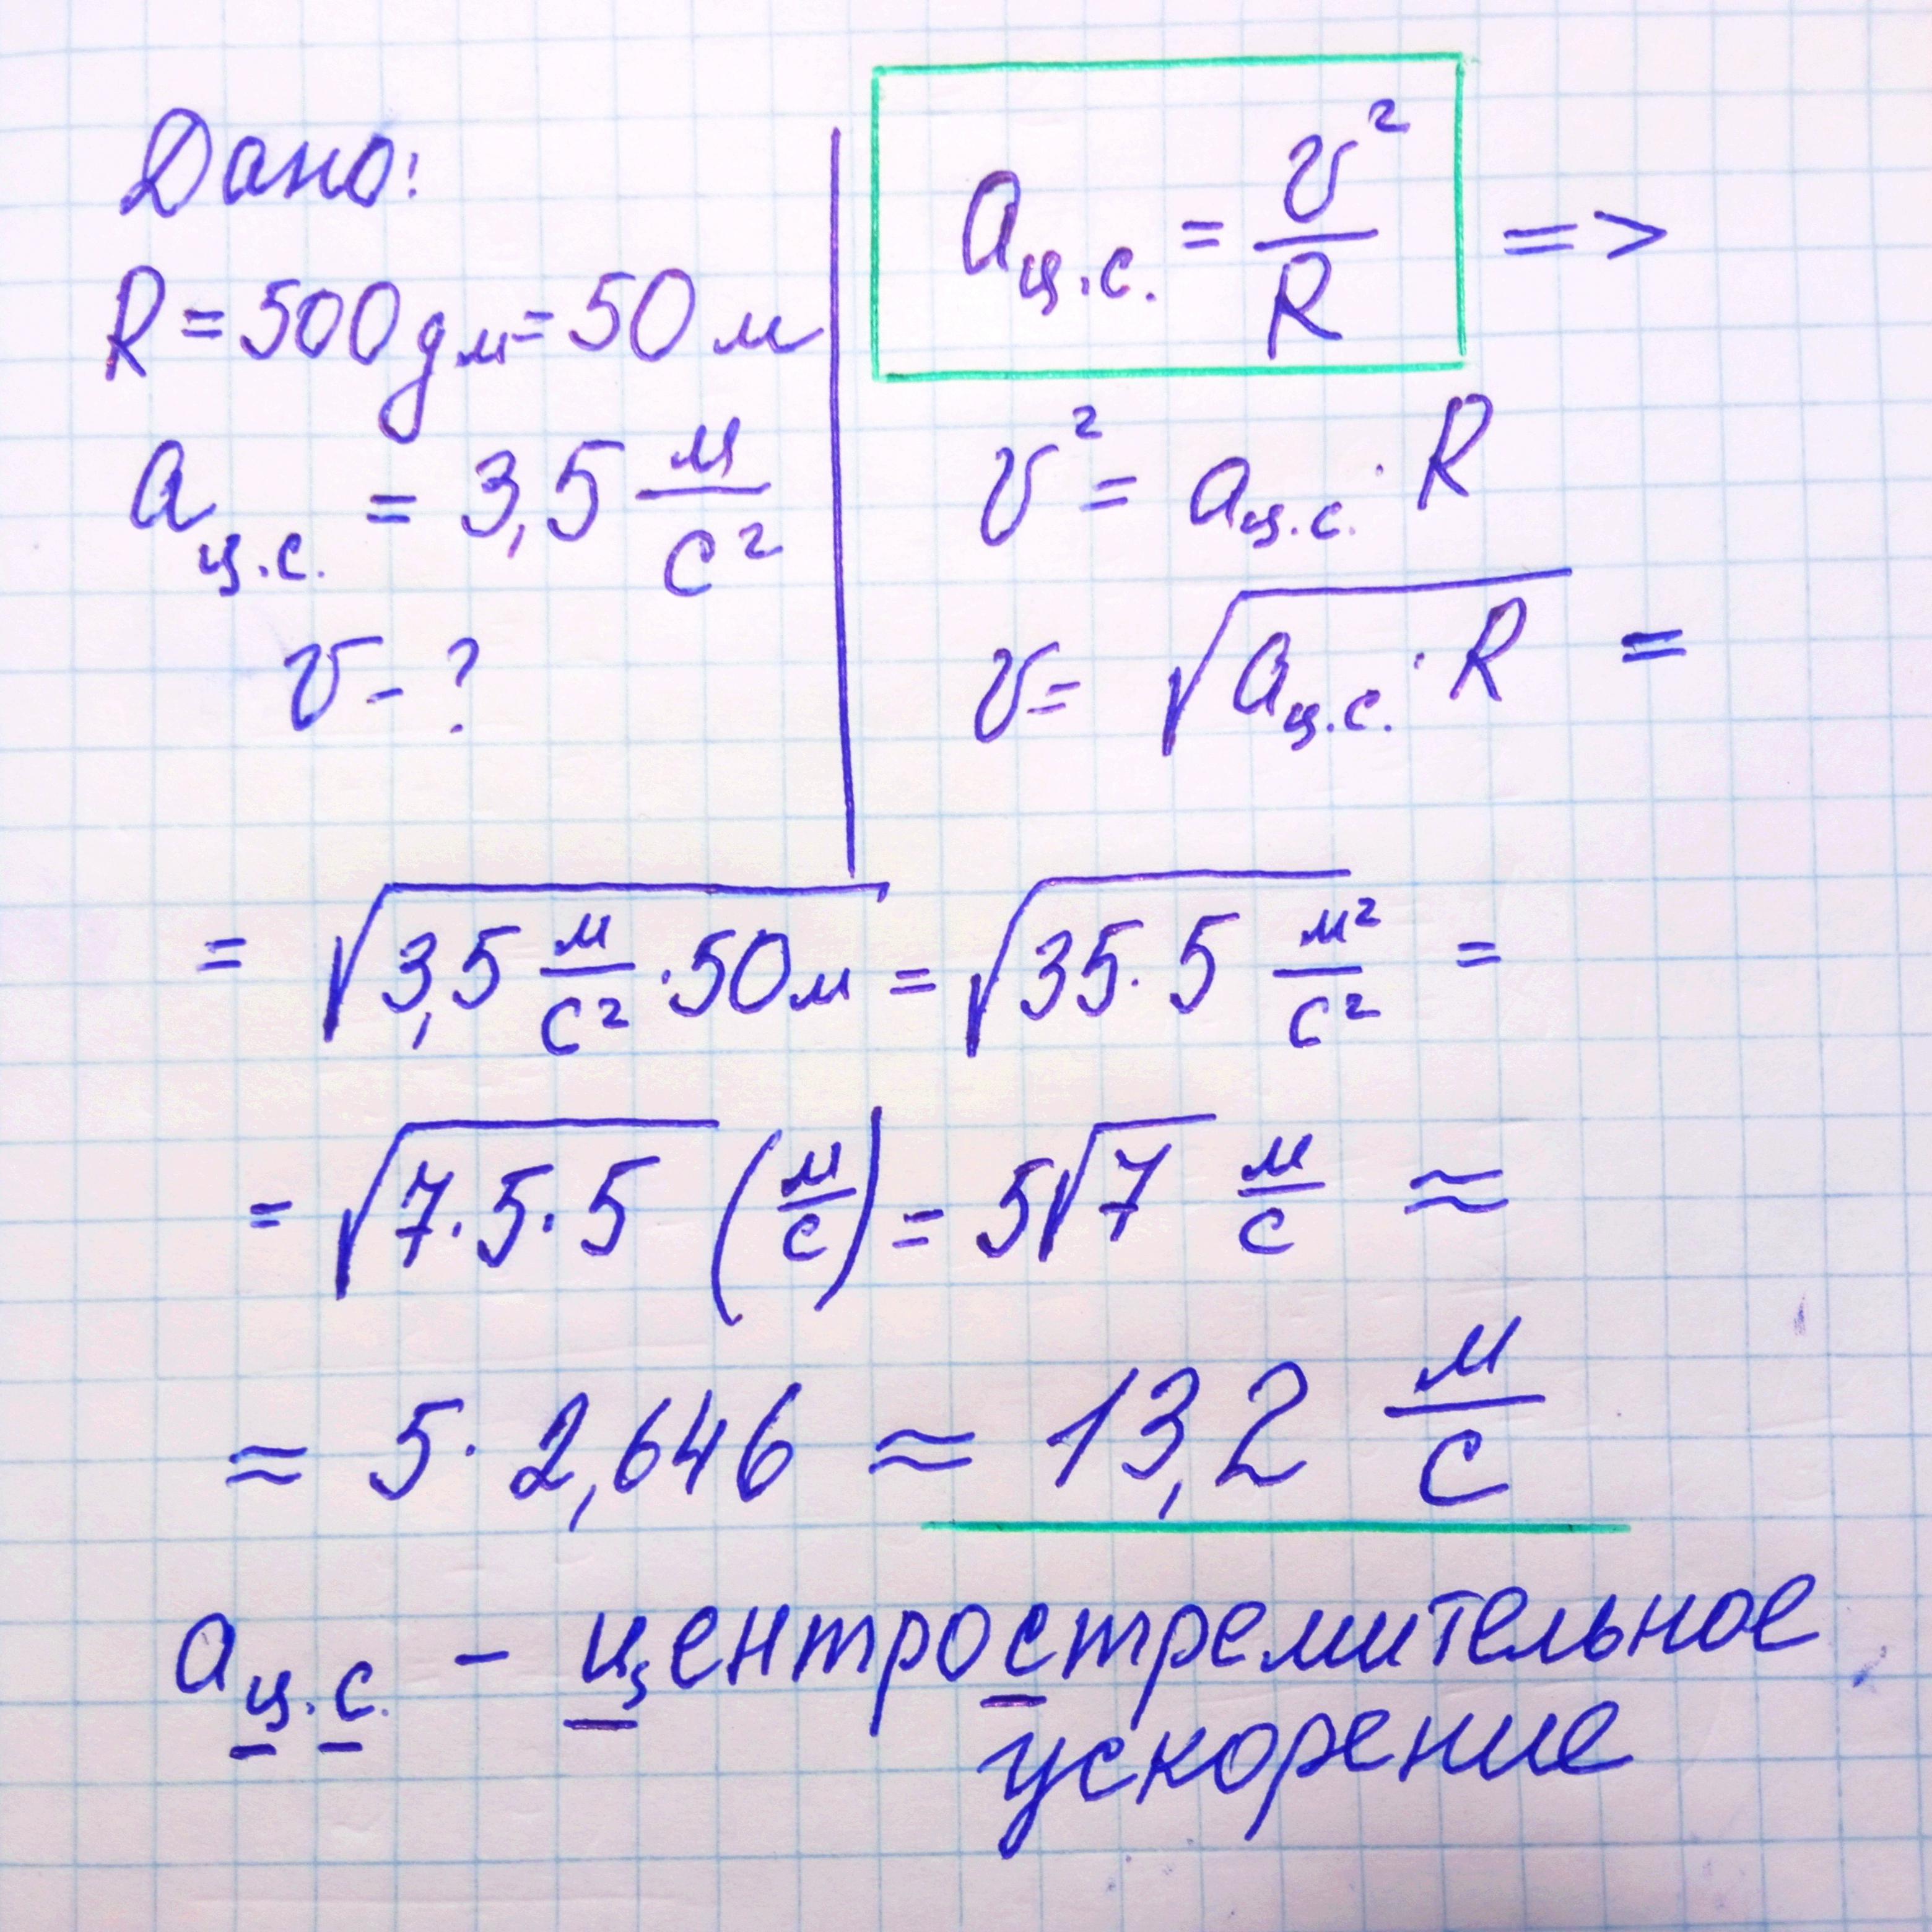 Дано:
R = 500 дм = 50 м
a ц.с. = 3,5 м/с²
v - ?
a ц.с. = v²/R =>
v² = a ц.с. · R
v = √(a ц.с. · R) =
= √(3,5 м/с² · 50 м) = √(35 · 5 м²/с²) =
= √(7 · 5 · 5) (м/с) = 5√7 м/с ≈
≈ 5 · 2,646 ≈ 13,2 м/с
a ц.с. - центростремительное
ускорение